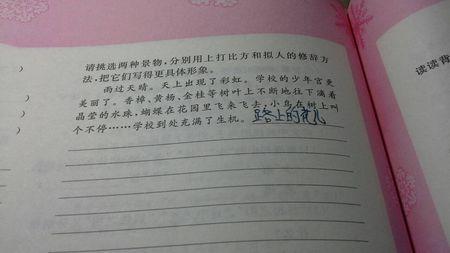 请挑选两种景物，分别用上打比方和拟人的修辞方
法，把它们写得更具体形象。
雨过天晴。天上出现了彩虹。学校的少年宫更
美丽了。香樟、黄杨、金桂等树叶上不断地往下滴着
晶莹的水珠，蝴蝶在花园里飞来飞去，小鸟在树上叫
个不停……学校到处充满了生机。路上的花儿
)
)
)
)
读读背